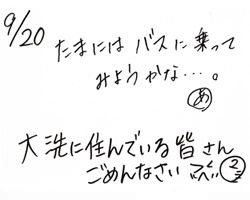 9/20
たまには バスに乗って
みようかな…。
あ
大洗に住んでいる皆さん
ごめんなさい